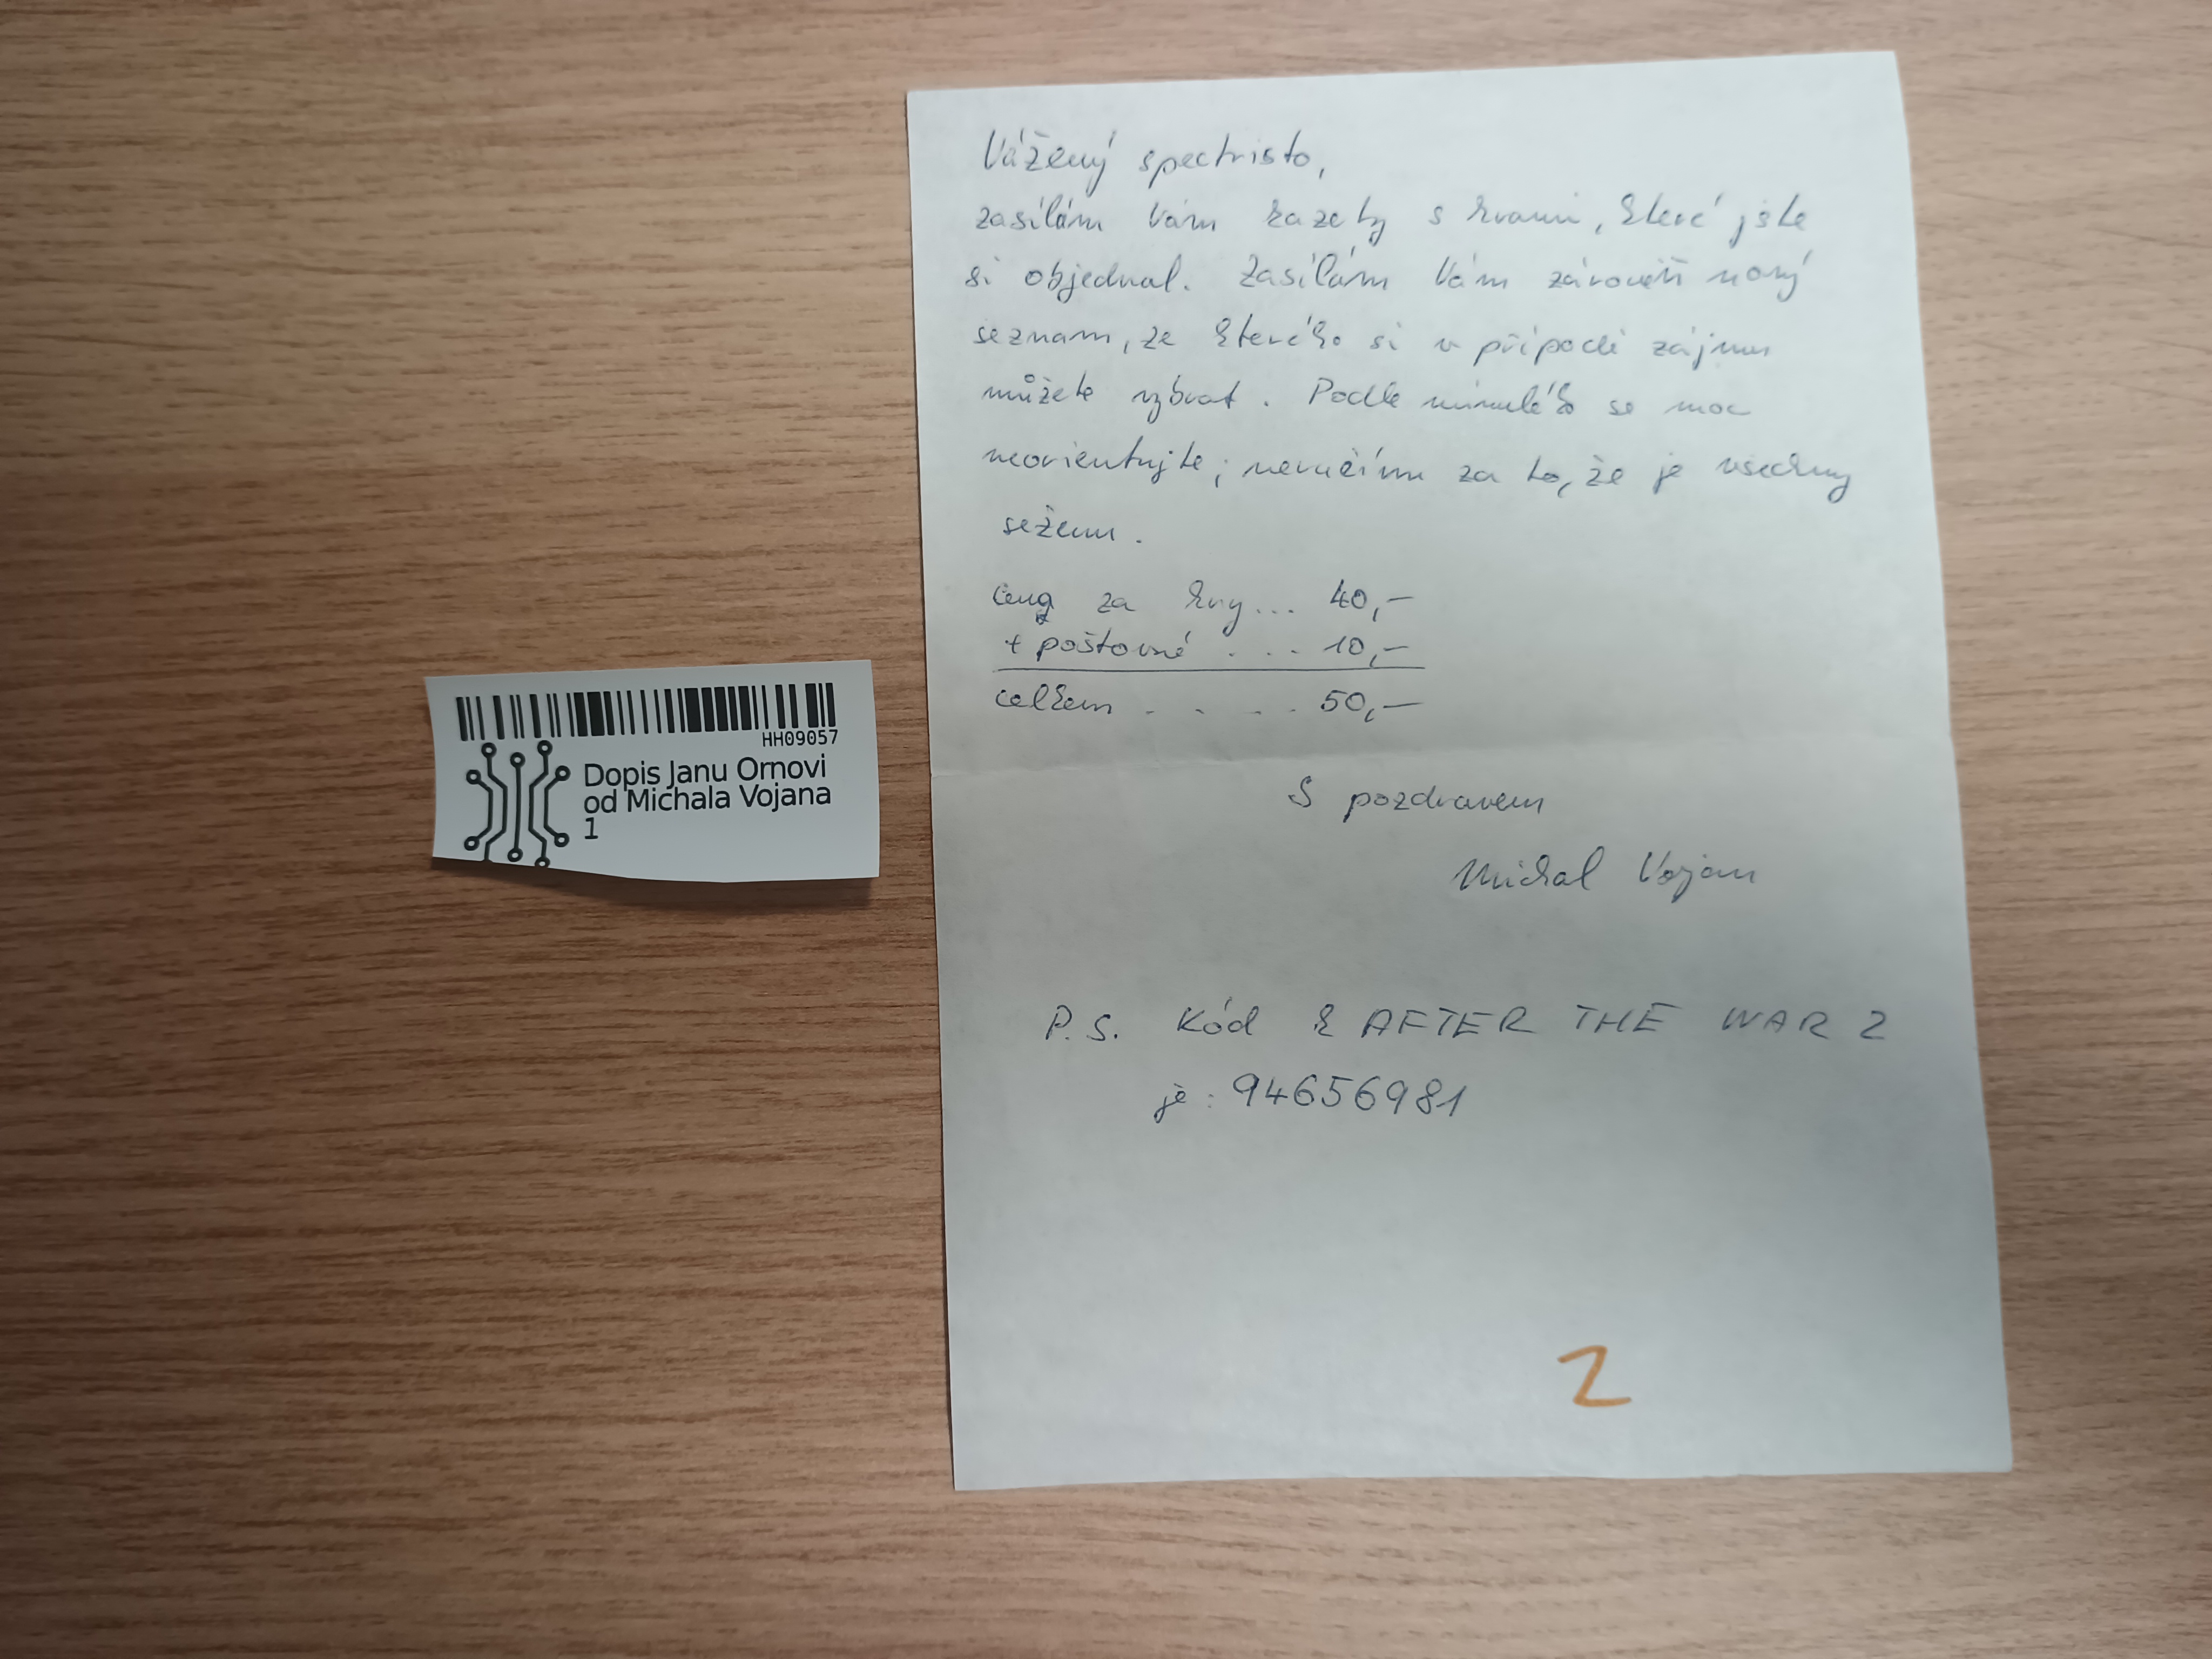 Vážený spectristo,
zasílám Vám kazety s hrami, které jste
si objednal. Zasílám Vám zároveň nový
seznam, ze kterého si v případě zájmu
můžete vybrat. Podle minulého se moc
neorientujte; neručím za to, že je všechny
seženu.
Ceny za hry... 40,-
+ poštovné . . . 10,-
celkem . . . . 50,-
S pozdravem
Michal Vojan
P.S. Kód k AFTER THE WAR 2
je: 94656981
2
HH09057
Dopis Janu Ornovi
od Michala Vojana
1